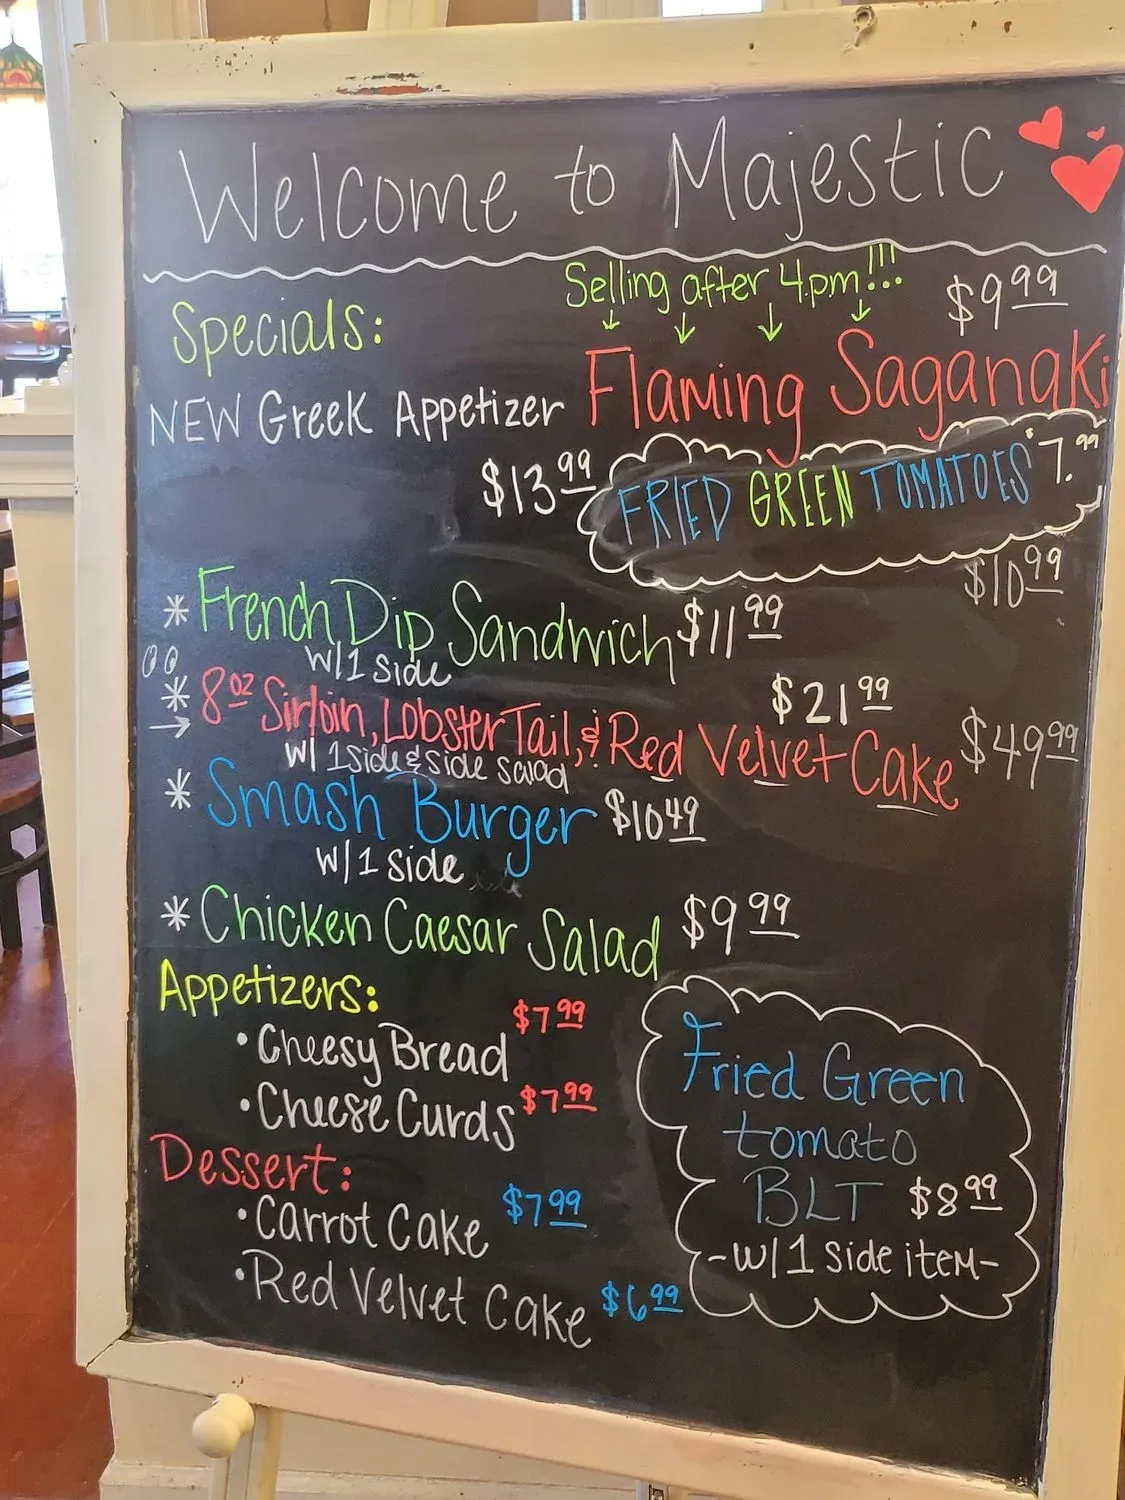 Welcome to Majestic
Selling after 4pm!!!
Specials:
$9.99
NEW Greek Appetizer
Flaming Saganaki
$13.99
FRIED GREEN TOMATOES $7.99
$10.99
* French Dip Sandwich $11.99
W/1 side
$21.99
* 8oz Sirloin, Lobster Tail, & Red Velvet Cake $49.99
→
W/ 1 side & side salad
* Smash Burger $10.49
W/1 side
* Chicken Caesar Salad $9.99
Appetizers:
• Cheesy Bread $7.99
• Cheese Curds $7.99
Dessert:
• Carrot Cake $7.99
• Red Velvet Cake $6.99
Fried Green
tomato
BLT $8.99
-W/1 side item-